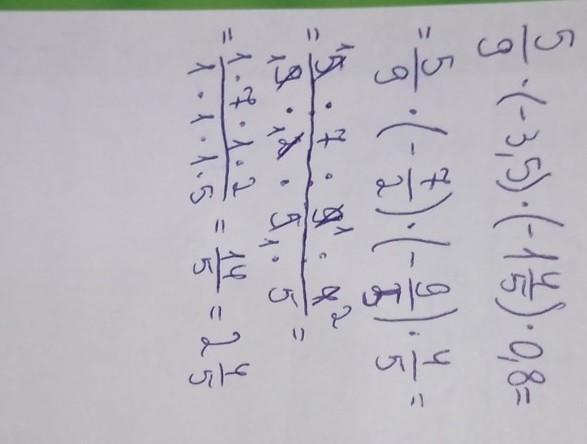 5/9 · (-3,5) · (-1 4/5) · 0,8 =
= 5/9 · (-7/2) · (-9/5) · 4/5 =
= (5 1 · 7 · 9 1 · 4 2)/(9 1 · 2 1 · 5 1 · 5) =
= (1 · 7 · 1 · 2)/(1 · 1 · 1 · 5) = 14/5 = 2 4/5